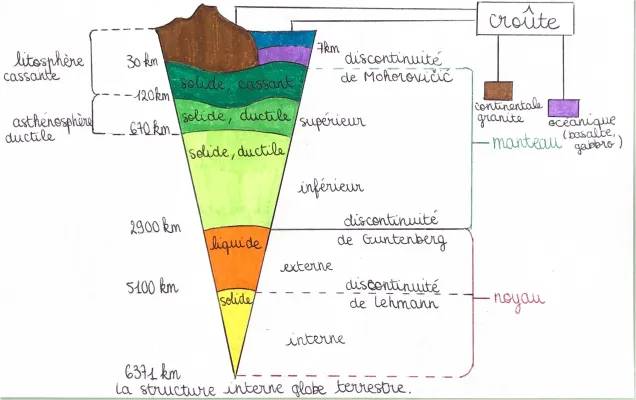 croûte
7km
litosphère
cassante
30 km
discontinuité
de Mohorovičić
solide, cassant
120km
continentale
granite
océanique
(basalte,
gabbro)
asthénosphère
ductile
solide, ductile
670 km
supérieur
manteau
solide, ductile
inférieur
2900 km
discontinuité
de Guntenberg
liquide
externe
5100 km
discontinuité
de Lehmann
solide
noyau
interne
6371 km
la structure interne globe terrestre.